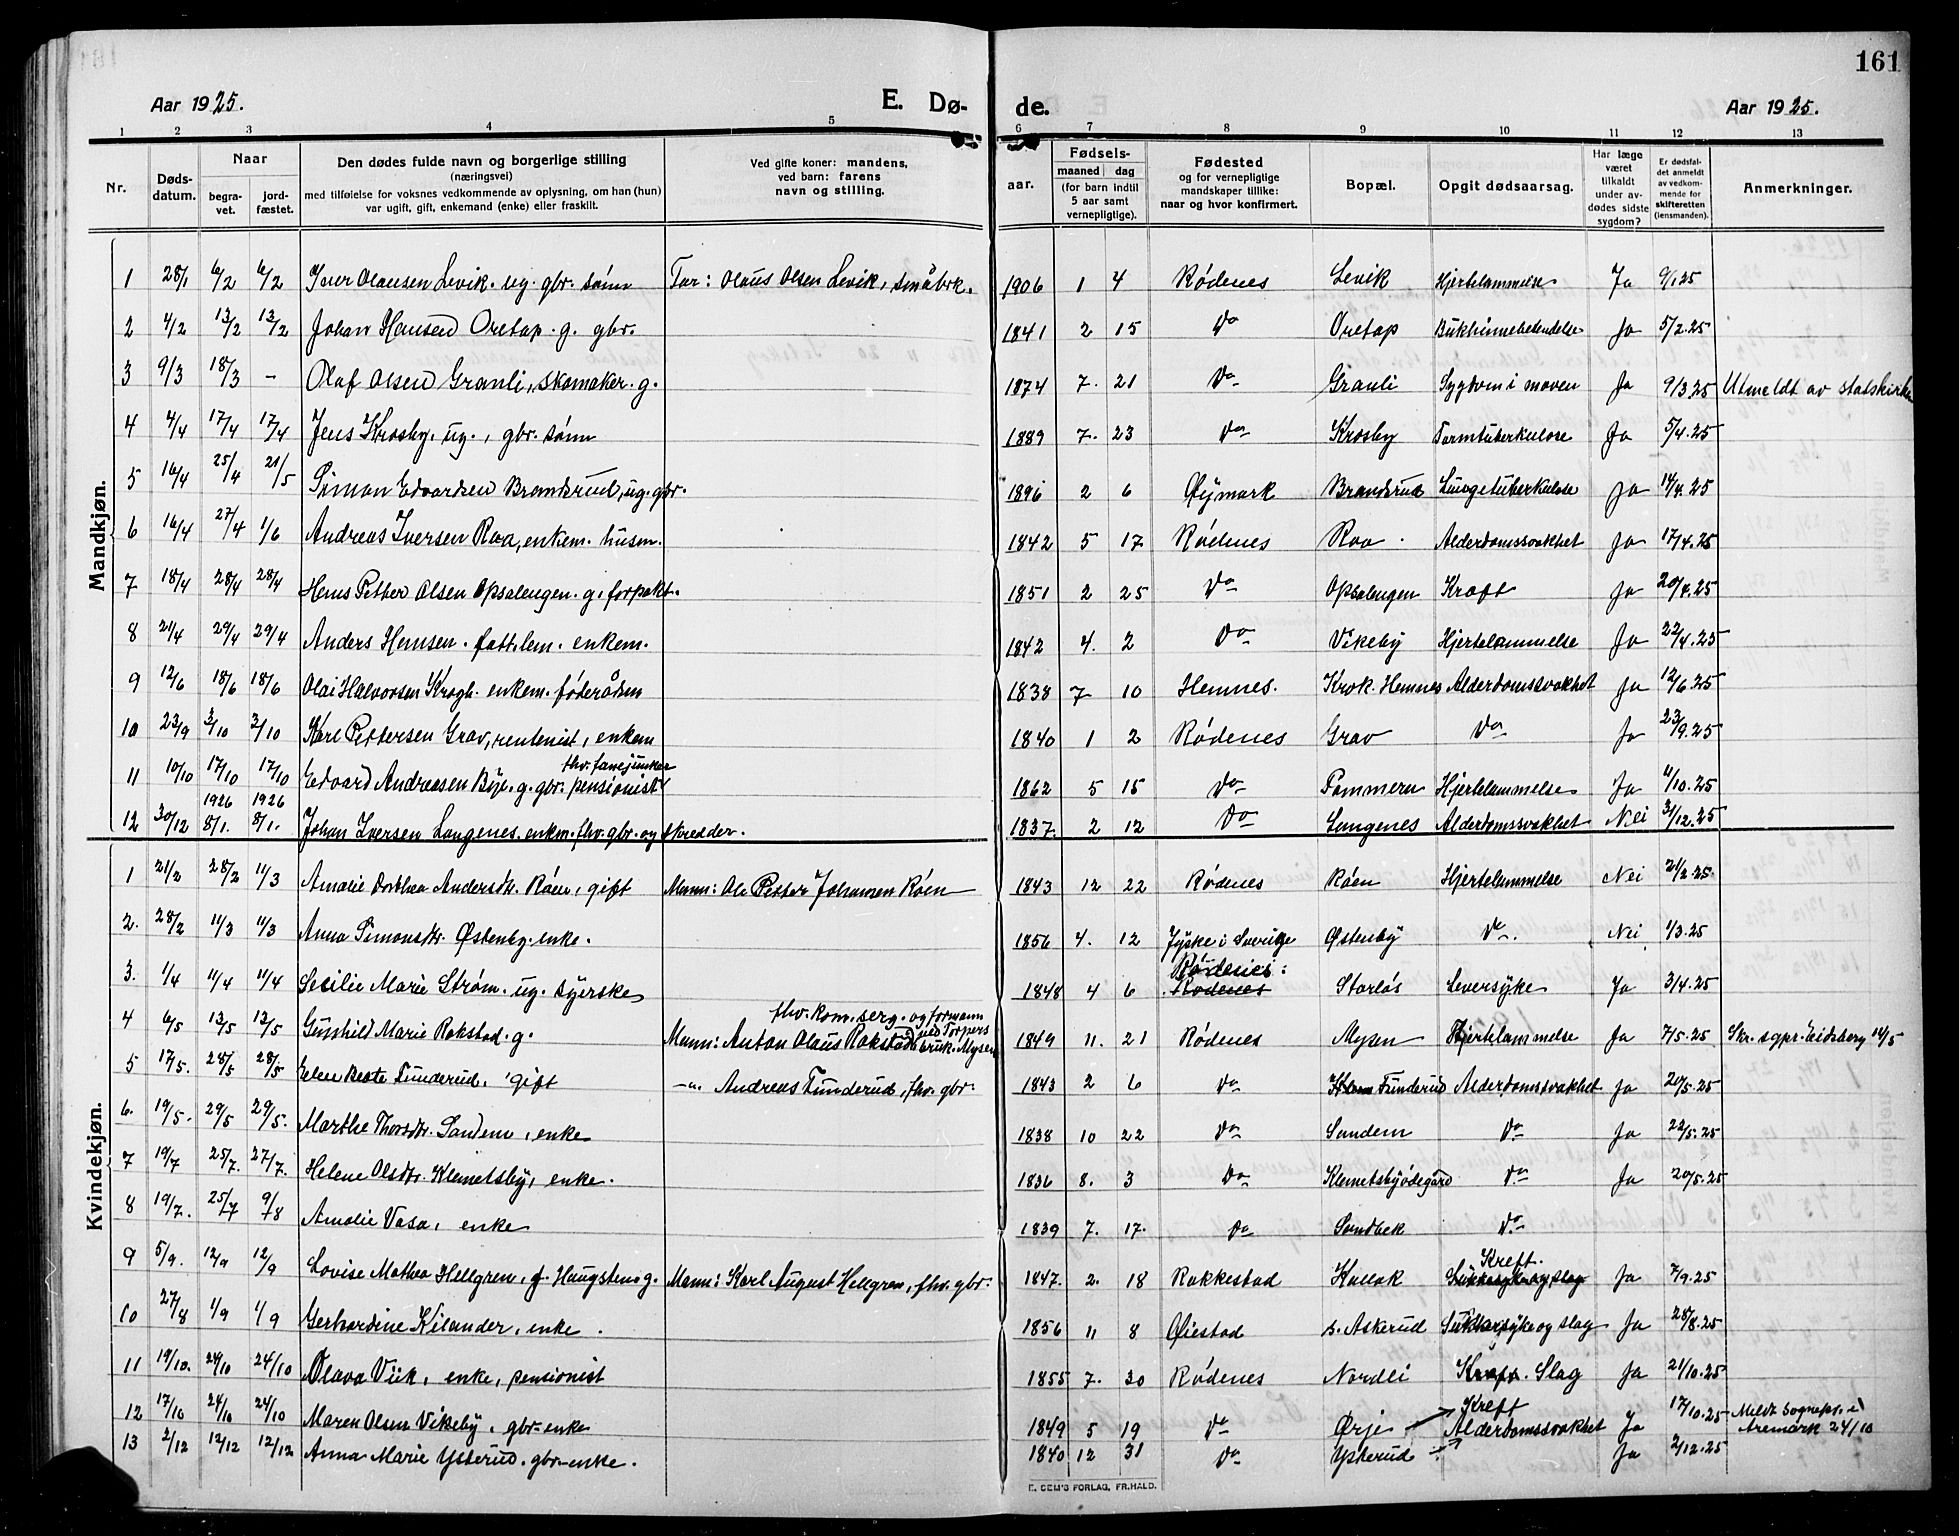 161
Aar 1925. E. Dø- de. Aar 1925.
1 2 3 4 5 6 7 8 9 10 11 12 13
Nr. Dødsdatum. Naar begravet. jordfæstet. Den dødes fulde navn og borgerlige stilling (næringsvei) med tilføielse for voksnes vedkommende av oplysning, om han (hun) var ugift, gift, enkemand (enke) eller fraskilt. Ved gifte koner: mandens, ved barn: farens navn og stilling. Fødselsaar. maaned dag (for barn indtil 5 aar samt vernepligtige). Fødested og for vernepligtige mandskaper tillike: naar og hvor konfirmert. Bopæl. Opgit dødsaarsag. Har læge været tilkaldt under avdødes sidste sygdom? Er dødsfaldet anmeldt av vedkommende for skifteretten (lensmanden). Anmerkninger.
Mandkjøn.
1 28/1 6/2 6/2 Iver Olausen Levik. ug. gbr. sønn Far: Olaus Olsen Levik, småbrk. 1906 1 4 Rødenes Levik Hjertelammelse Ja 9/1.25
2 4/2 13/2 13/2 Johan Hansen Oretop. g. gbr. 1841 2 15 Do Oretop Bukhinnebetendelse Ja 5/2.25
3 9/3 18/3 - Olaf Olsen Granli, skomaker. g. 1874 7. 21 Do Granli Sygdom i maven Ja 9/3.25 Utmeldt av statskirken
4 4/4 17/4 17/4 Jens Krosby. ug., gbr. sønn 1889 7. 23 Do Krosby Tarmtuberkulose Ja 5/4.25
5 16/4 25/4 21/5 Simon Edvardsen Brandsrud, ug. gbr. 1896 2 6 Øymark Brandsrud Lungetuberkulose Ja 17/4.25
6 16/4 27/4 1/6 Andreas Iversen Roa, enkem. husm. 1842 5 17 Rødenes Roa. Alderdomssvakhet Ja 17/4.25
7 18/4 28/4 28/4 Hans Petter Olsen Opsalengen. g. forpakt. 1851 2 25 Do Opsalengen Kræft Ja 20/4.25
8 21/4 29/4 29/4 Anders Hansen. fatt.lem. enkem. 1842 4. 2 Do Vikeby Hjertelammelse Ja 22/4.25
9 12/6 18/6 18/6 Olai Halvorsen Krogh. enkem. føderådsm 1838 7 10 Hemnes. Krok. Hemnes Alderdomssvakhet Ja 12/6.25
10 23/9 3/10 3/10 Karl Pettersen Grav, rentenist, enkem 1840 1 2 Rødenes Grav Do Ja 23/9.25
fhv. fanejunker
11 10/10 17/10 17/10 Edvard Andreassen Bye. g. gbr. pensionist 1862 5 15 Do Pommern Hjertelammelse Ja 11/10.25
1926 1926
12 30/12 8/1. 8/1. Johan Iversen Langenes. enkm. fhv. gbr. og skredder. 1837. 2 12 Do Langenes Alderdomssvakhet Nei 31/12.25
Kvindekjøn.
1 21/2 28/2 11/3 Amalie Dorthea Andersdtr. Røen, gift Mann: Ole Petter Johansen Røen 1843 12 22 Rødenes Røen Hjertelammelse Nei 21/2.25
2. 28/2 11/3 11/3 Anna Simonsdtr. Østenby. enke. 1856 4. 12 Jyske i Sverige Østenby Do. Nei 1/3.25
Rødenes:
3. 1/4 11/4 11/4 Secilie Marie Strøm. ug. syerske 1848 4 6 Rødenes Storløs Leversyke Ja 3/4.25
fhv. kom. serg. og formann ved Torpers
4 6/5 13/5 13/5 Gunhild Marie Rokstad. g. Mann: Anton Olaus Rokstad bruk. Mysen 1849 11. 21 Rødenes Mysen Hjertelammelse Ja 7/5.25 Skr. sgpr. Eidsberg 14/5
5 17/5. 28/5 28/5 Elen Beate Funderud. gift -"- Andreas Funderud, fhv. gbr. 1843 2 6 Do Funderud Alderdomssvakhet Ja 20/5.25
6. 19/5. 29/5 29/5. Marthe Thorsdtr. Sandem, enke 1838 10 22 Do Sandem Do Ja 22/5.25
7 19/7 25/7. 27/7. Helene Olsdtr. Klemetsby, enke. 1836 8. 3 Do Klemetsbyødegård Do Ja 20/5.25
8 19/7. 25/7 9/8 Amalie Vasa, enke 1839 7. 17. Do Sandbek Do
Kreft.
9 5/9. 12/9 12/9 Lovise Mathea Hellgren, f. Haugsten g. Mann: Karl August Hellgren, fhv. gbr. 1847. 2. 18 Rakkestad Kallak Sukkersyke og slag Ja 7/9.25
10 27/8 1/9 1/9 Gerhardine Kilander, enke. 1856 11 8 Øiestad s. Askerud Sukkersyke og slag Ja 28/8.25
11 19/10. 24/10 24/10 Olava Viik, enke, pensionist 1855 7. 30 Rødenes Nordli Kreft. Slag Ja 21/10.25
Kreft
12 17/10 24/10 24/10 Maren Olsen Vikeby, gbr-enke 1849 5 19 Do Ørje Alderdomssvakhet Ja 17/10.25 Meldt sognepr. i Aremark 24/10
13 2/12 12/12 12/12 Anna Marie Ysterud. gbr-enke. 1840 12 31 Do Ysterud -"- Ja 2/12.25
E. SEM'S FORLAG, FR.HALD.